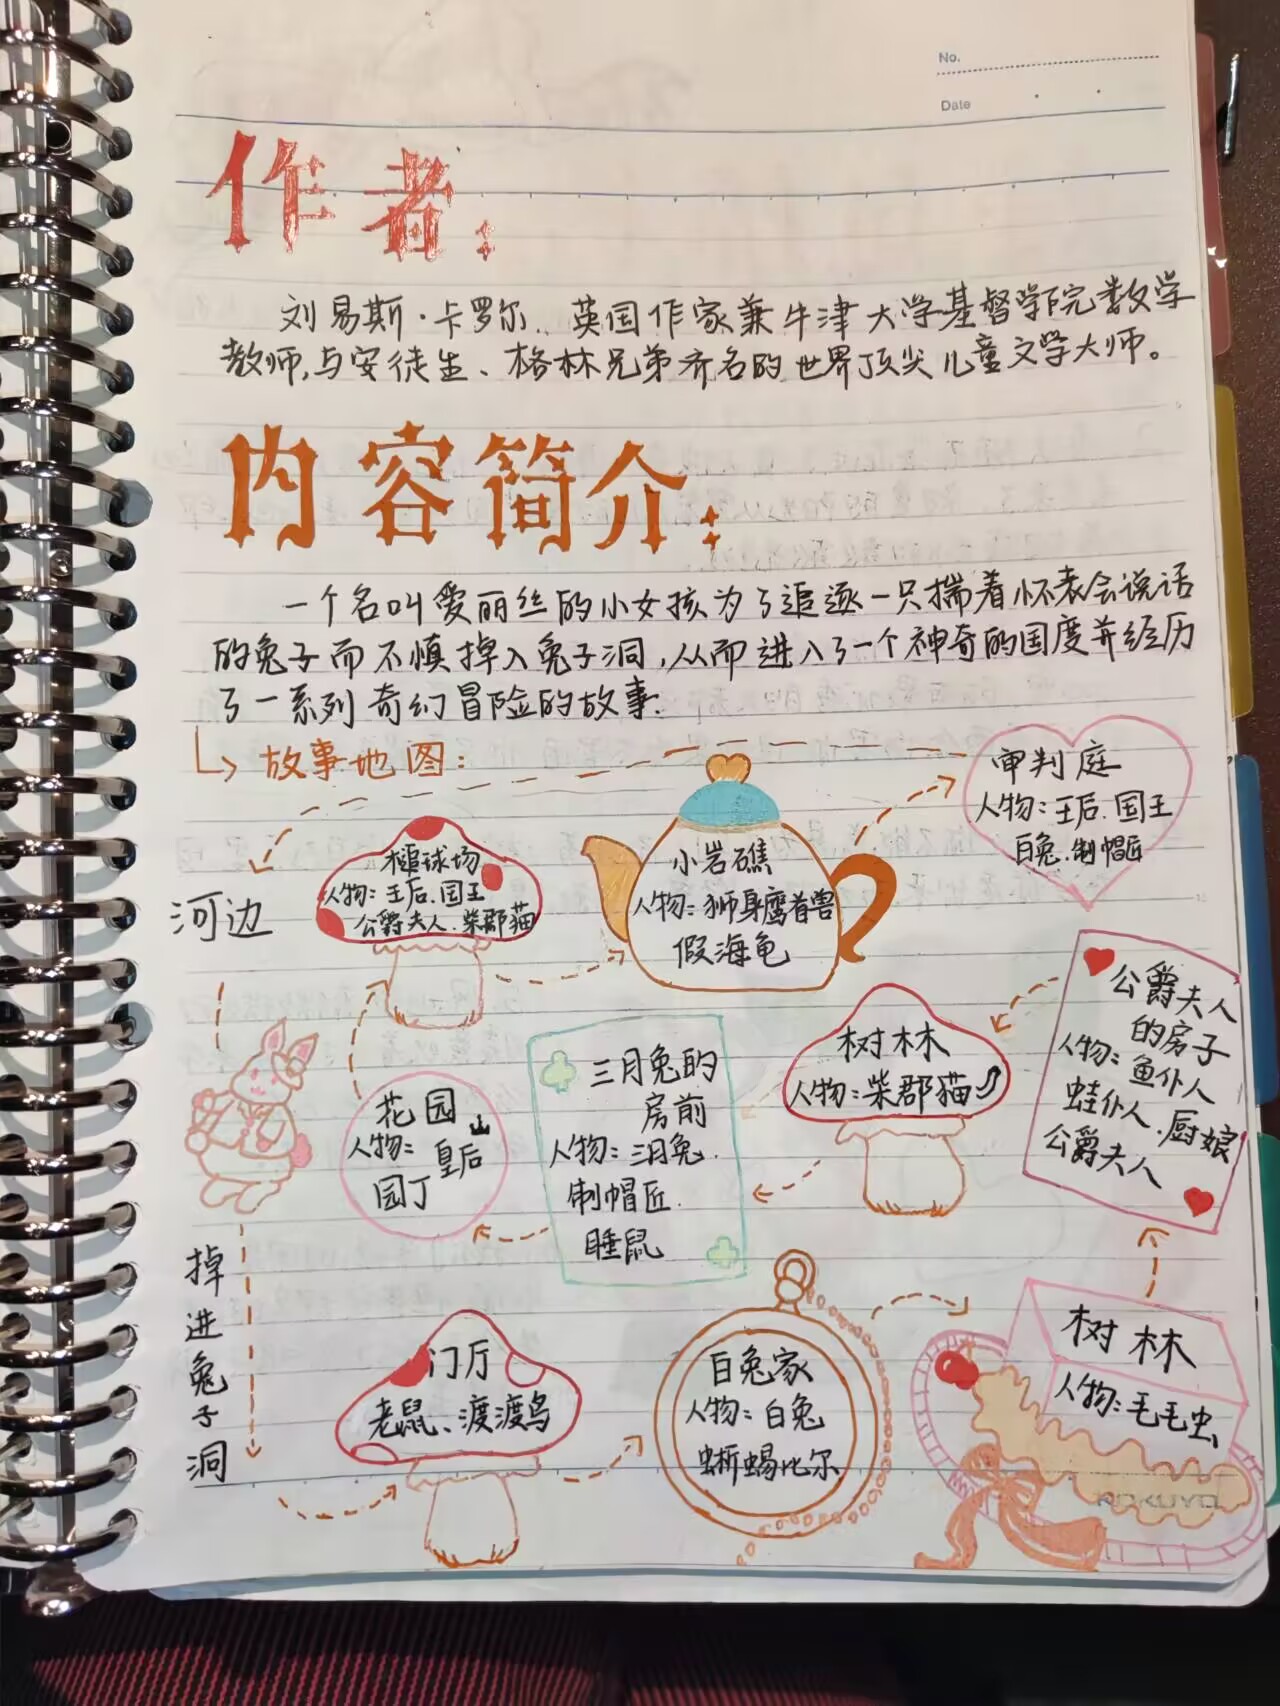 No.
Date
作者:
刘易斯·卡罗尔、英国作家兼牛津大学基督学院数学
教师,与安徒生、格林兄弟齐名的世界顶尖儿童文学大师。
内容简介:
一个名叫爱丽丝的小女孩为了追逐一只揣着怀表会说话
的兔子而不慎掉入兔子洞,从而进入了一个神奇的国度并经历
了一系列奇幻冒险的故事.
故事地图:
河边
掉进兔子洞
门厅
老鼠、渡渡鸟
白兔家
人物:白兔
蜥蜴比尔
树林
人物:毛毛虫
KOKUYO
公爵夫人
的房子
人物:鱼仆人
蛙仆人.厨娘
公爵夫人
树林
人物:柴郡猫
三月兔的
房前
人物:三月兔.
制帽匠.
睡鼠
花园
人物:皇后
园丁
槌球场
人物:王后.国王
公爵夫人.柴郡猫
小岩礁
人物:狮身鹰首兽
假海龟
审判庭
人物:王后.国王
白兔.制帽匠